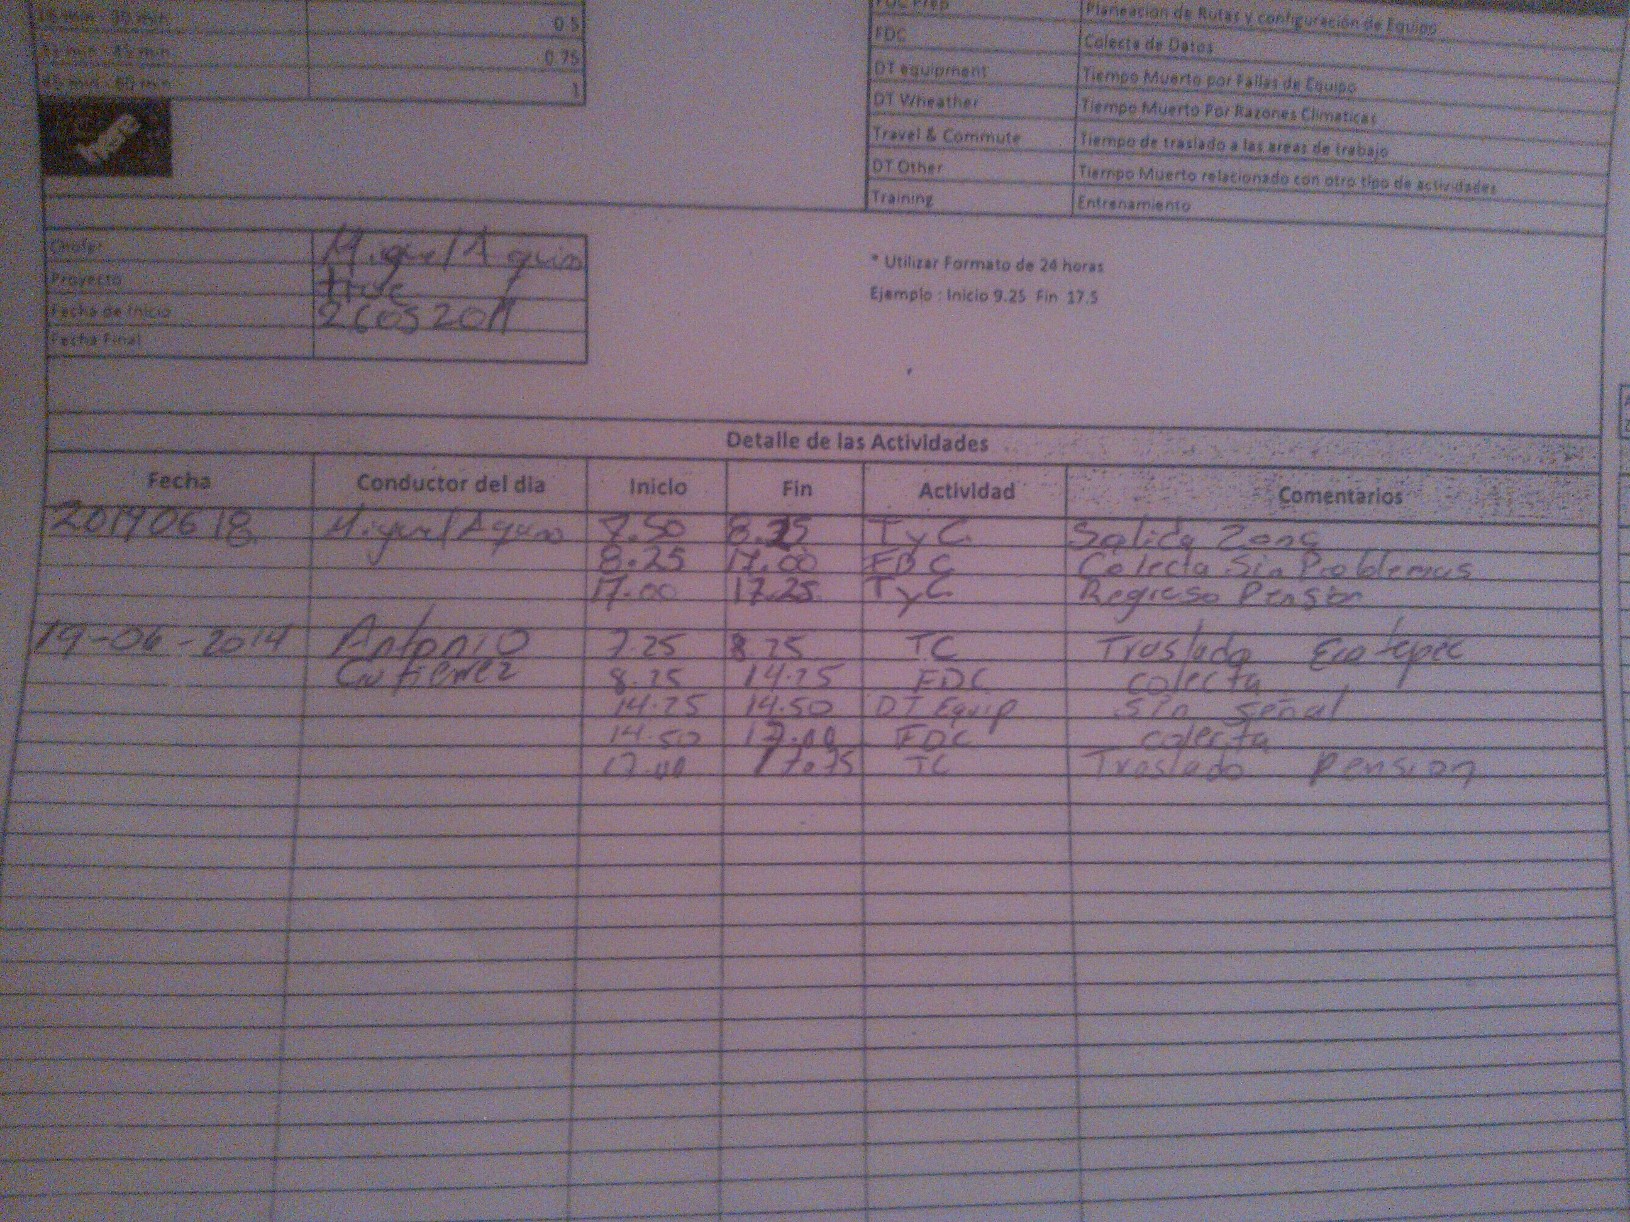 0.5
0.75
45 min - 60 min 1
FDC Prep Planeacion de Rutas y configuración de Equipo
FDC Colecta de Datos
DT equipment Tiempo Muerto por Fallas de Equipo
DT Wheather Tiempo Muerto Por Razones Climaticas
Travel & Commute Tiempo de traslado a las areas de trabajo
DT Other Tiempo Muerto relacionado con otro tipo de actividades
Training Entrenamiento
here
Chofer Miguel Aquino
Proyecto true
Fecha de Inicio
Fecha Final
* Utilizar Formato de 24 horas
Ejemplo : Inicio 9.25 Fin 17.5
Detalle de las Actividades
Fecha Conductor del dia Inicio Fin Actividad Comentarios
20140618 Miguel Aquino 7.50 8.25 TyC Salida Zona
8.25 17.00 FDC Colecta Sin Problemas
17.00 17.25 TyC Regreso Pension
19-06-2014 Antonio 7.25 8.25 TC Traslado Ecatepec
Gutierrez 8.25 14.25 FDC colecta
14.25 14.50 DT Equip sin señal
14.50 17.00 FDC colecta
17.00 17.75 TC Traslado pension